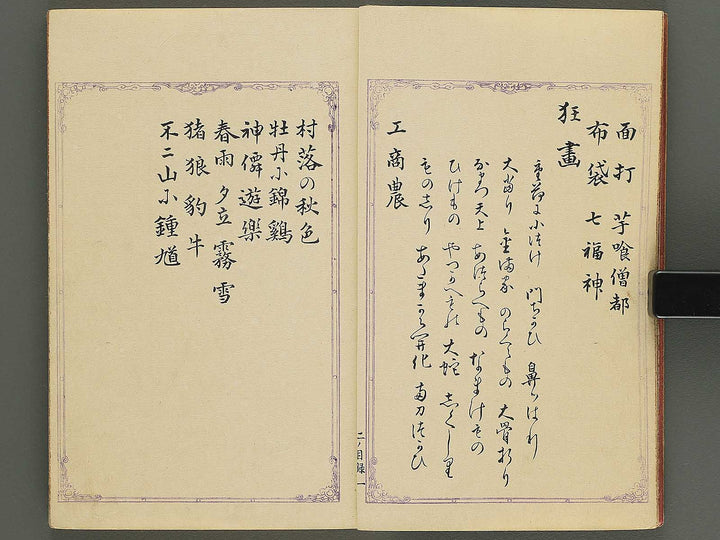 面打 芋喰僧都
布袋 七福神
狂畫
小づけ 門ちがひ 鼻つはり
大當り 金満家 のらくらもの 大骨折り
天上 あつらへもの なまけもの
ひけもの 大蛇
ものしり あたまから開化 両刀づかひ
工商農
村落の秋色
牡丹小錦鷄
神僊遊樂
春雨 夕立 霧 雪
猪狼豹牛
不二山小鍾馗
二ノ目録 一